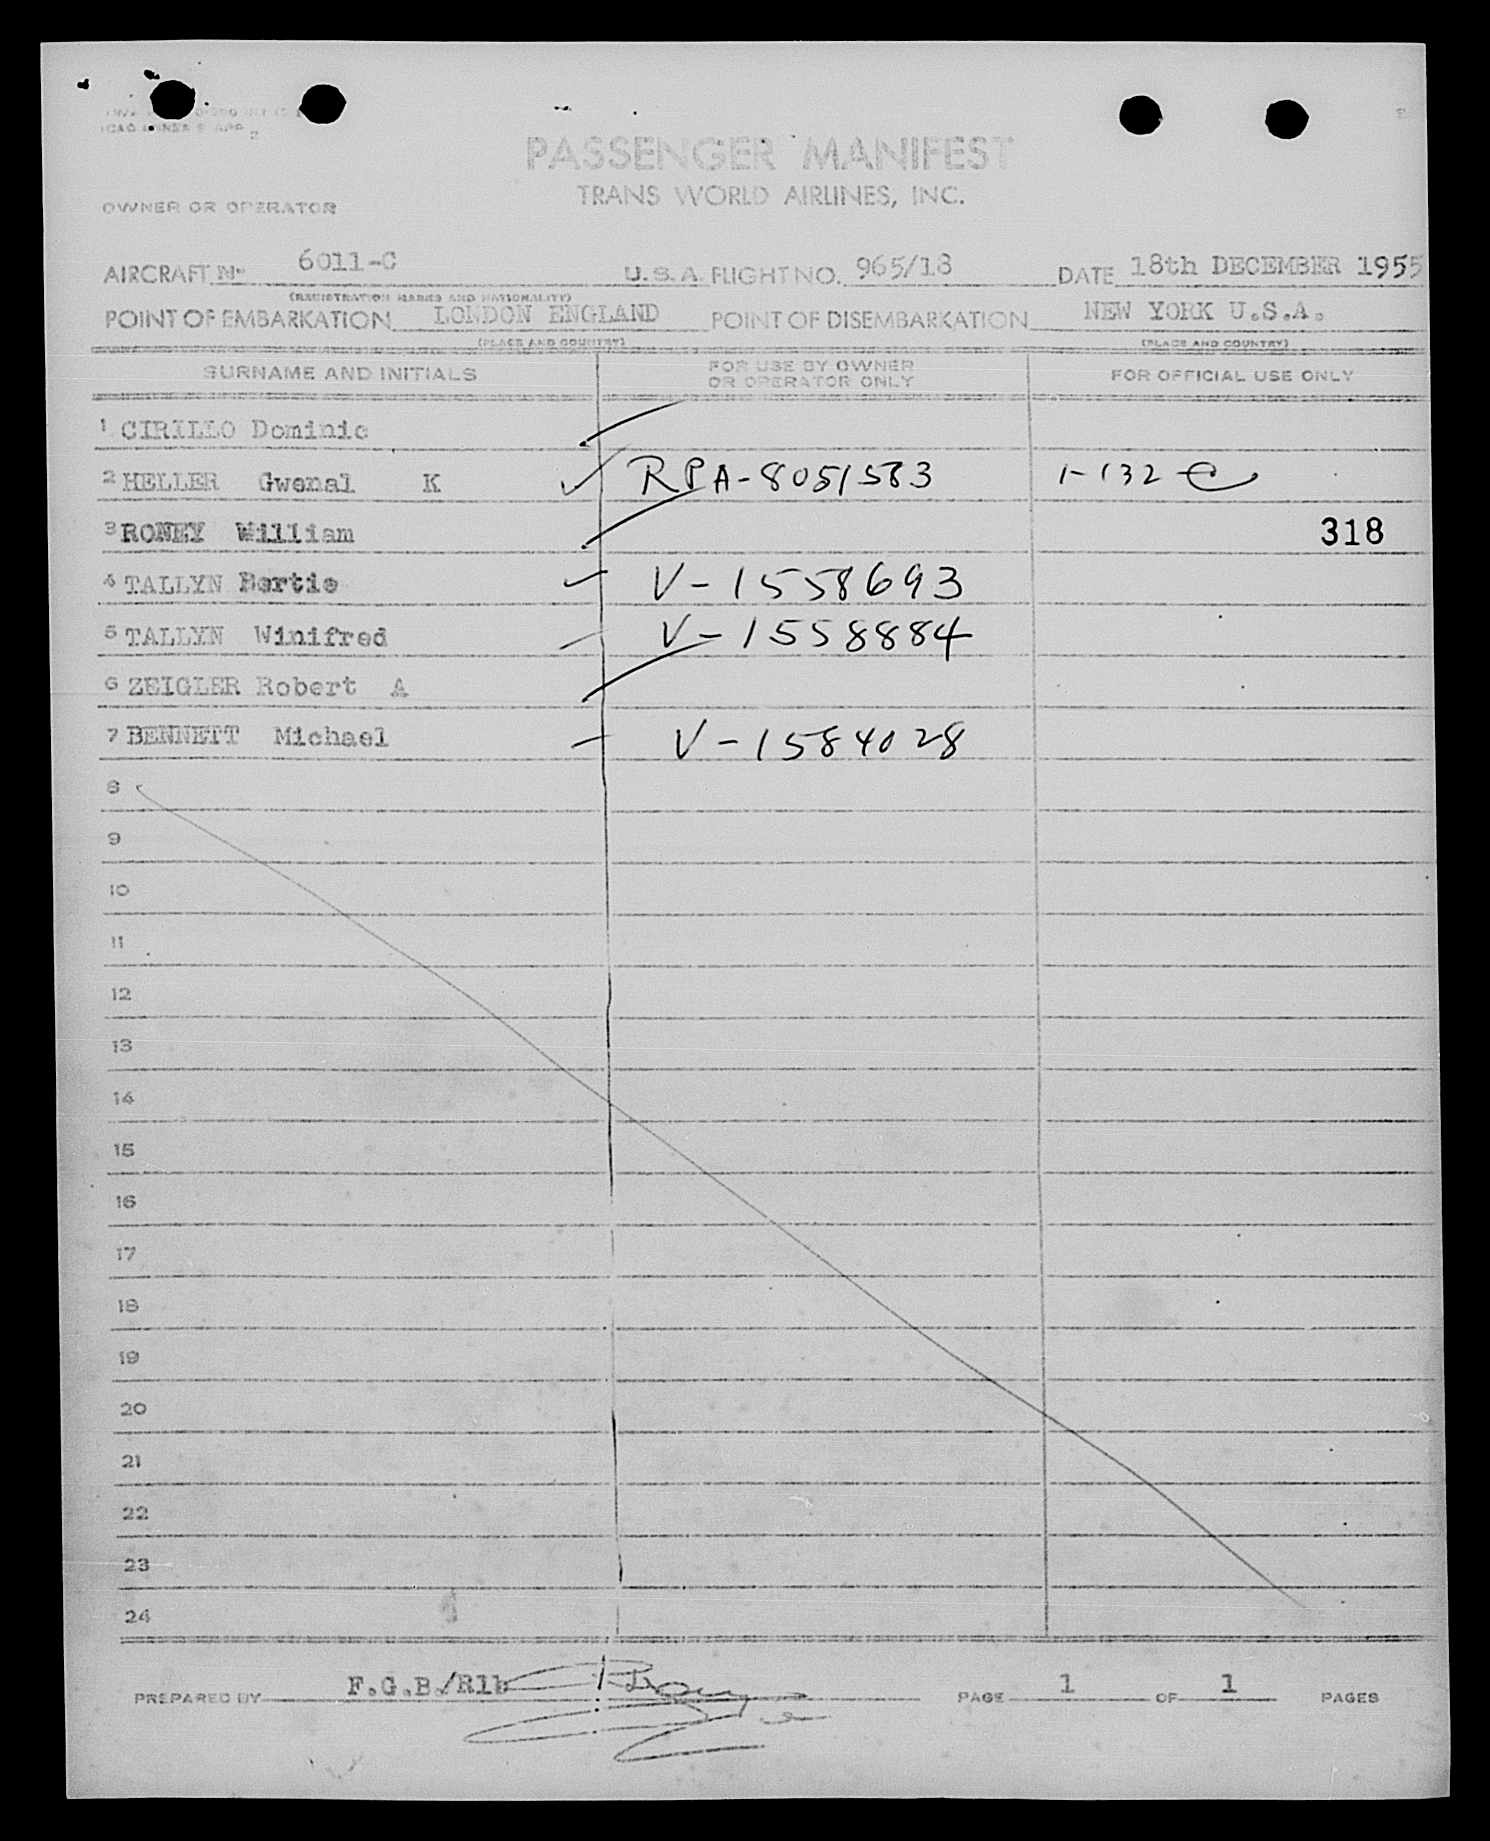 PASSENGER MANIFEST
TRANS WORLD AIRLINES, INC.
OWNER OR OPERATOR
AIRCRAFT No 6011-C U.S.A. FLIGHT NO. 965/18 DATE 18th DECEMBER 1955
(REGISTRATION MARKS AND NATIONALITY)
POINT OF EMBARKATION LONDON ENGLAND POINT OF DISEMBARKATION NEW YORK U.S.A.
(PLACE AND COUNTRY) (PLACE AND COUNTRY)
SURNAME AND INITIALS FOR USE BY OWNER OR OPERATOR ONLY FOR OFFICIAL USE ONLY
1 CIRILLO Dominic
2 HELLER Gwenal K RPA-8051583 1-132
3 RONEY William 318
4 TALLYN Bertie V-1558693
5 TALLYN Winifred V-1558884
6 ZEIGLER Robert A
7 BENNETT Michael V-1584028
8
9
10
11
12
13
14
15
16
17
18
19
20
21
22
23
24
PREPARED BY F.G.B./Rlb PAGE 1 OF 1 PAGES